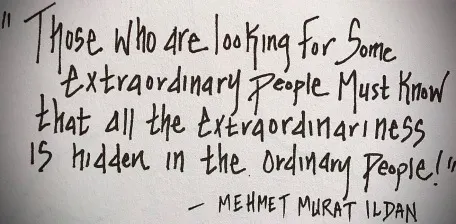 "Those who are looking for Some
extraordinary people Must Know
that all the extraordinariness
is hidden in the ordinary people!"
– MEHMET MURAT ILDAN